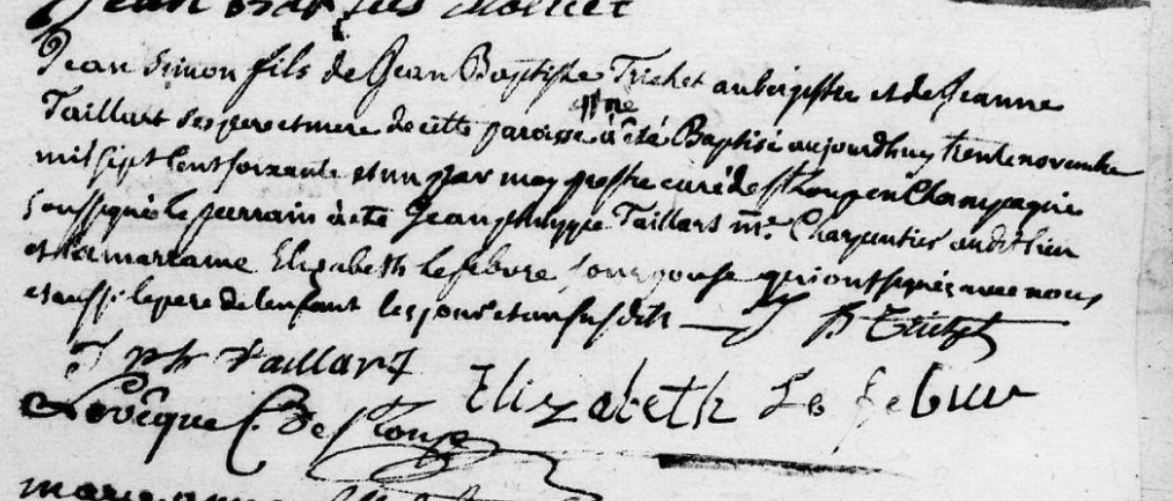 Jean Simon fils de Jean Baptiste Trichet aubergistre et de Jeanne
Taillart ses pere et mere de cette paroisse à été Baptisé aujourdhuy trente novembre
mil sept cent soixante et un par moy prestre curé de st Loup en Champagne
soussigné le parrain à été Jean philippe Taillart me. Charpentier audit lieu
et la marraine Elizabeth lefebvre son epouse qui ont signés avec nous
et aussi le pere de lenfant les jour et an susdits J B Trichet
J ph taillart Elizabeth Le febvre
Levêque C. De St Loup